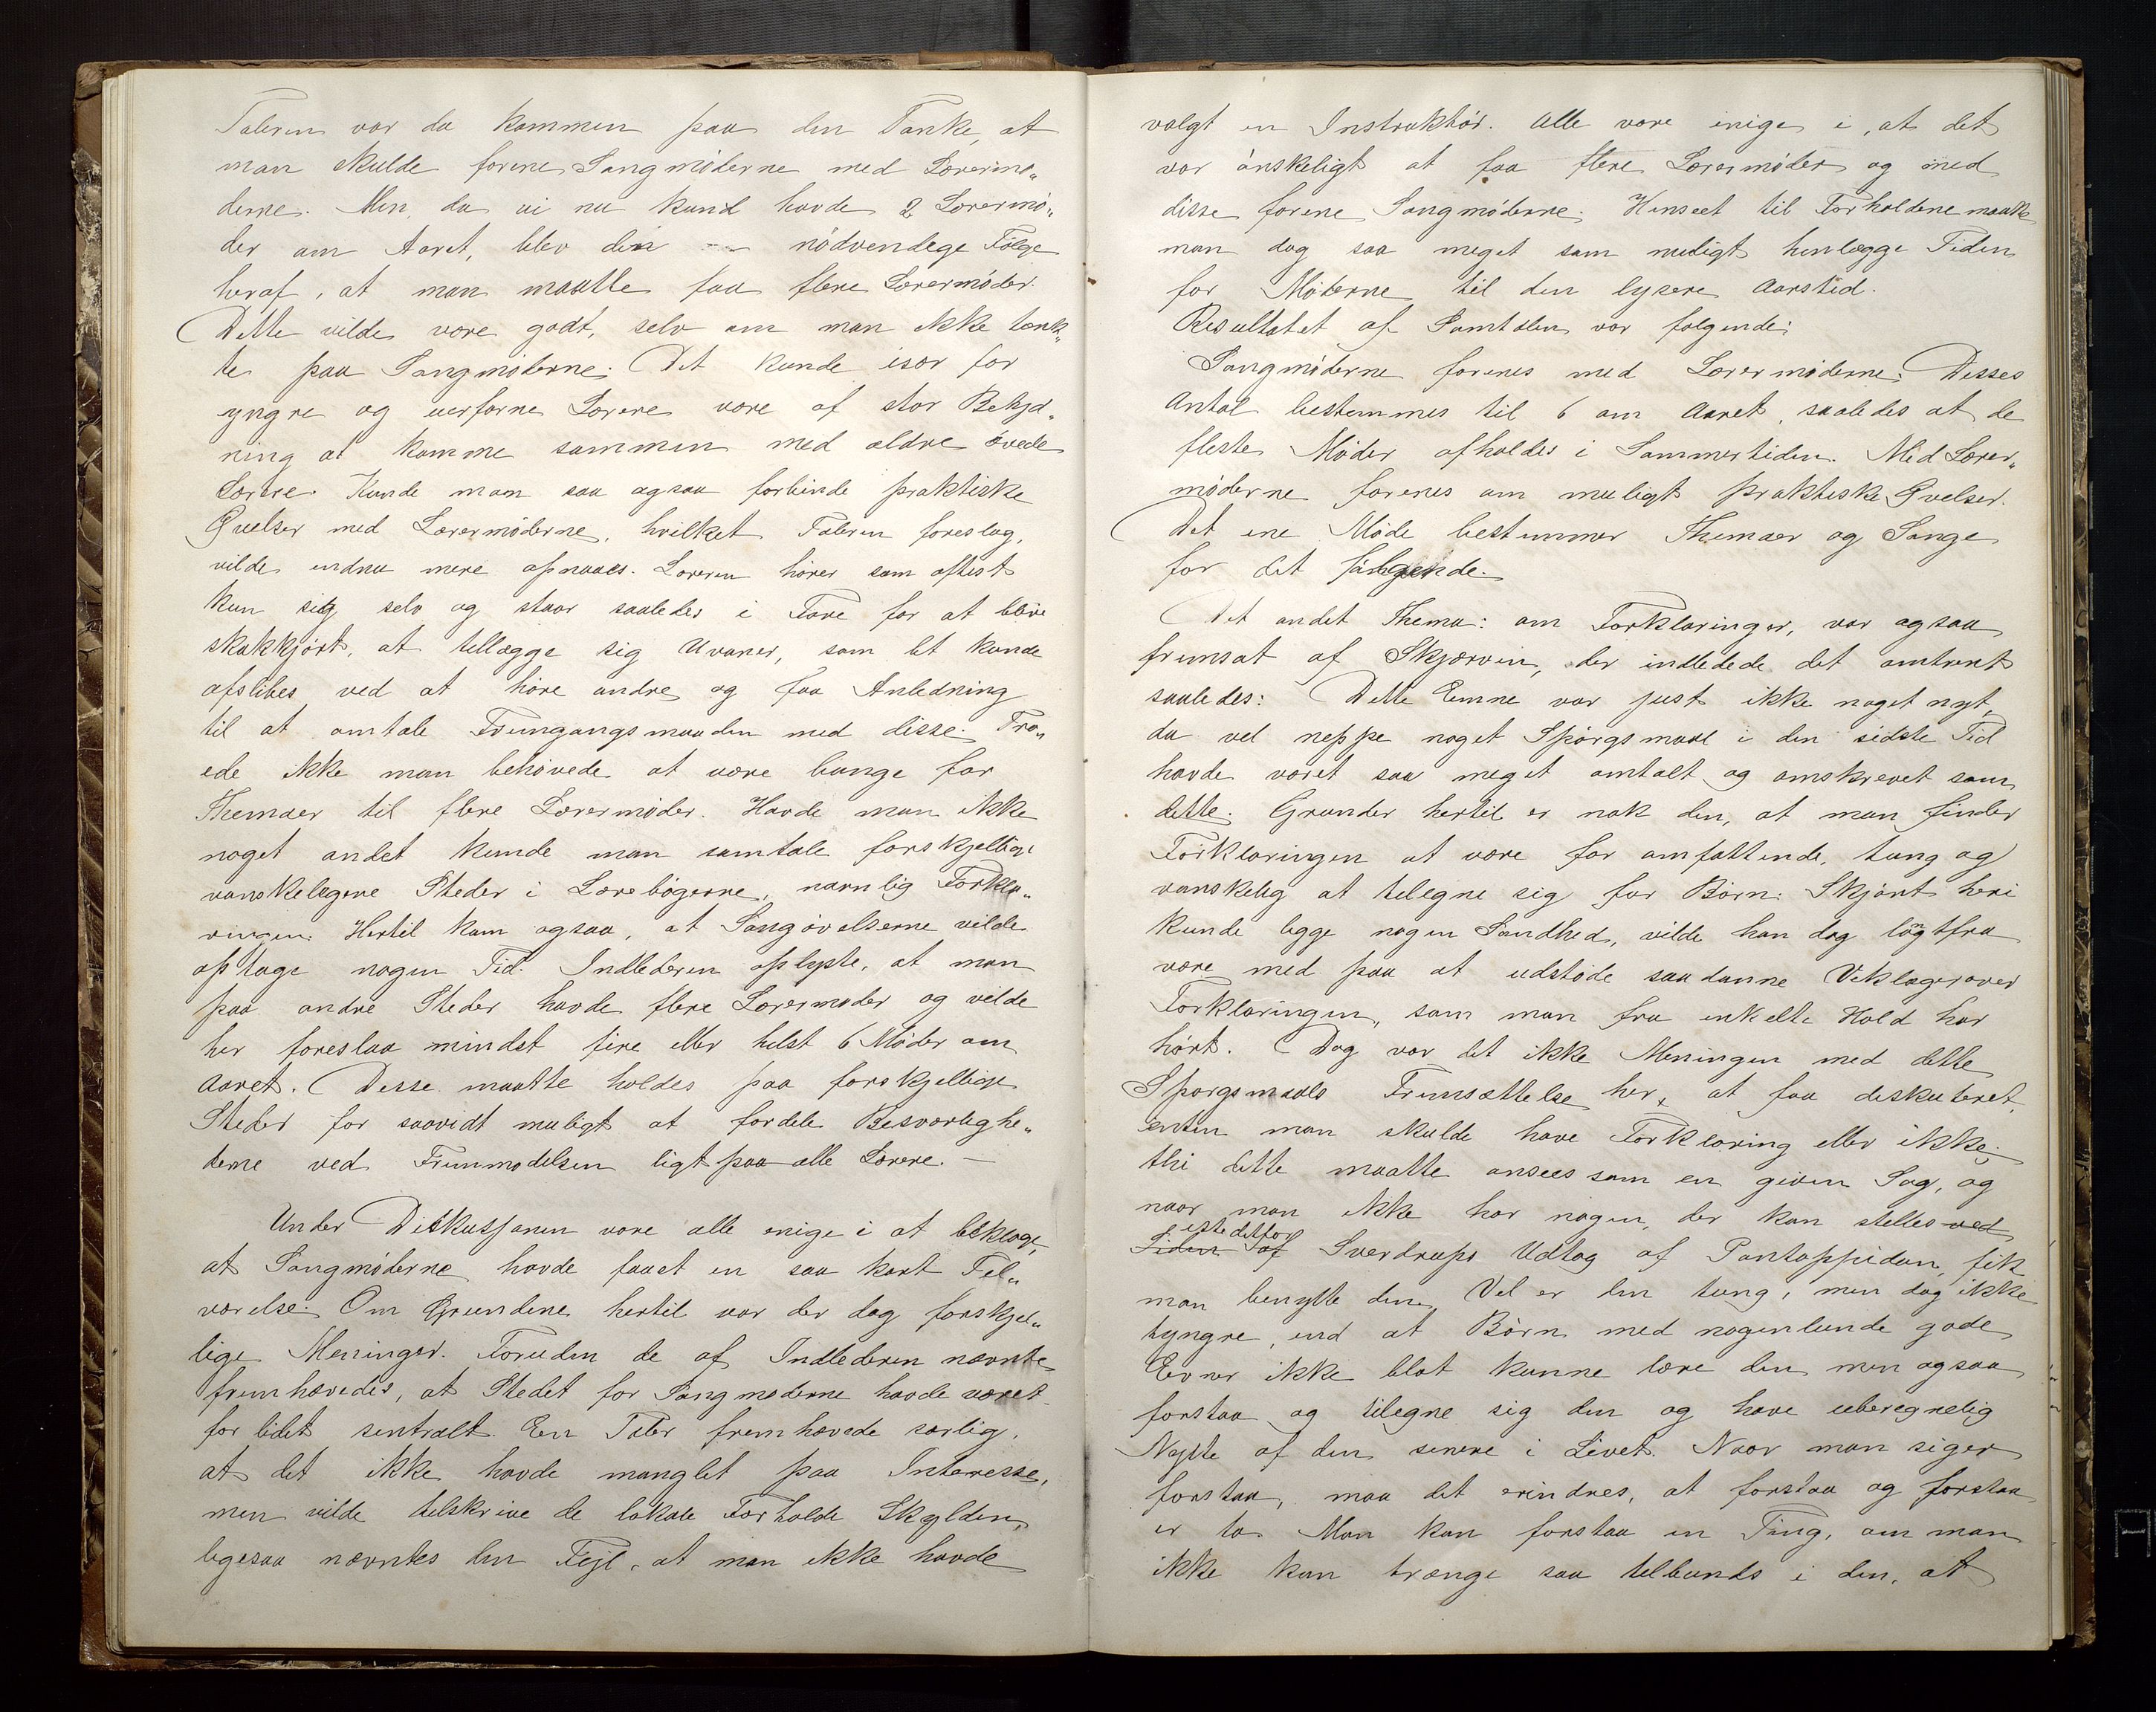 Taleren var da kommen paa den Tanke, at
man skulde forene Sangmøderne med Lærermø„
derne. Men da vi nu kund havde 2 Lærermø„
der om Aaret, blev den -- nødvendege Følge
heraf, at man maatte faa flere Lærermøder.
Dette vilde være godt, selv om man ikke tænk„
te paa Sangmøderne. Det kunde især for
yngre og uerfarne Lærere være af stor Betyd„
ning at komme sammen med ældre øvede
Lærere. Kunde man saa ogsaa forbinde praktiske
Øvelser med Lærermøderne, hvilket Taleren foreslog,
vilde endnu mere opnaaes. Læreren hører som oftest
kun sig selv og staar saaledes i Fare for at blive
skakkjørt, at tillægge sig Uvaner, som let kunde
afslibes ved at høre andre og faa Anledning
til at omtale Fremgangsmaaden med disse. Tro„
ede ikke man behøvede at være bange for
Themaer til flere Lærermøder. Havde man ikke
noget andet kunde man samtale forskjellige
vanskeligere Steder i Lærebøgerne, navnlig Forkla„
ringen. Hertil kom ogsaa, at Sangøvelserne vilde
optage nogen Tid. Indlederen oplyste, at man
paa andre Steder havde flere Lærermøder og vilde
her foreslaa mindst fire eller helst 6 Møder om
Aaret. Disse maatte holdes paa forskjellige
Steder for saavidt muligt at fordele Besværlighe„
derne ved Fremmødelsen ligt paa alle Lærere. —
Under Diskussjonen vare alle enige i at beklage,
at Sangmøderne havde faaet en saa kort Til„
værelse. Om Grundene hertil var der dog forskjel„
lige Meninger. Foruden de af Indlederen nævnte
fremhævedes, at Stedet for Sangmøderne havde været
for lidet sentralt. En Taler fremhævede særlig,
at det ikke havde manglet paa Interesse,
men vilde tilskrive de lokale Forholde Skylden,
ligesaa nævntes den Fejl, at man ikke havde
valgt en Instruktør. Alle vare enige i, at det
var ønskeligt at faa flere Lærermøder og med
disse forene Sangmøderne. Henseet til Forholdene maatte
man dog saa meget som muligt henlægge Tiden
for Møderne til den lysere Aarstid.
Resultatet af Samtalen var følgende:
Sangmøderne forenes med Lærermøderne. Disses
Antal bestemmes til 6 om Aaret, saaledes at de
fleste Møder afholdes i Sommertiden. Med Lærer„
møderne forenes om muligt praktiske Øvelser.
Det ene Møde bestemmer Themaer og Sange
for det følgende.
Det andet Thema: om Forklaringer, var ogsaa
fremsat af Skjærvin, der indledede det omtrent
saaledes: Dette Emne var just ikke noget nyt,
da vel neppe noget Spørgsmaal i den sidste Tid
havde været saa meget omtalt og omskrevet som
dette. Grunden hertil er nok den, at man finder
Forklaringen at være for omfattende, tung og
vanskelig at tilegne sig for Børn. Skjønt heri
kunde ligge nogen Sandhed, vilde han dog langtfra
være med paa at udstøde saadanne Veklager over
Forklaringen, som man fra enkelte Hold har
hørt. Dog var det ikke Meningen med dette
Spørgsmaals Fremsættelse her, at faa diskuteret,
enten man skulde have Forklaring eller ikke;
thi dette maatte ansees som en given Sag, og
naar man ikke har nogen, der kan stilles ved
istedetfor
Siden af Sverdrups Udtog af Pontoppidan, fik
man benytte den. Vel er den tung, men dog ikke
tyngre, end at Børn med nogenlunde gode
Evner ikke blot kunne lære den men ogsaa
forstaa og tilegne sig den og have uberegnelig
Nytte af den senere i Livet. Naar man siger
forstaa, maa det erindres, at forstaa og forstaa
er to. Man kan forstaa en Ting, om man
ikke kan trænge saa tilbunds i den, at